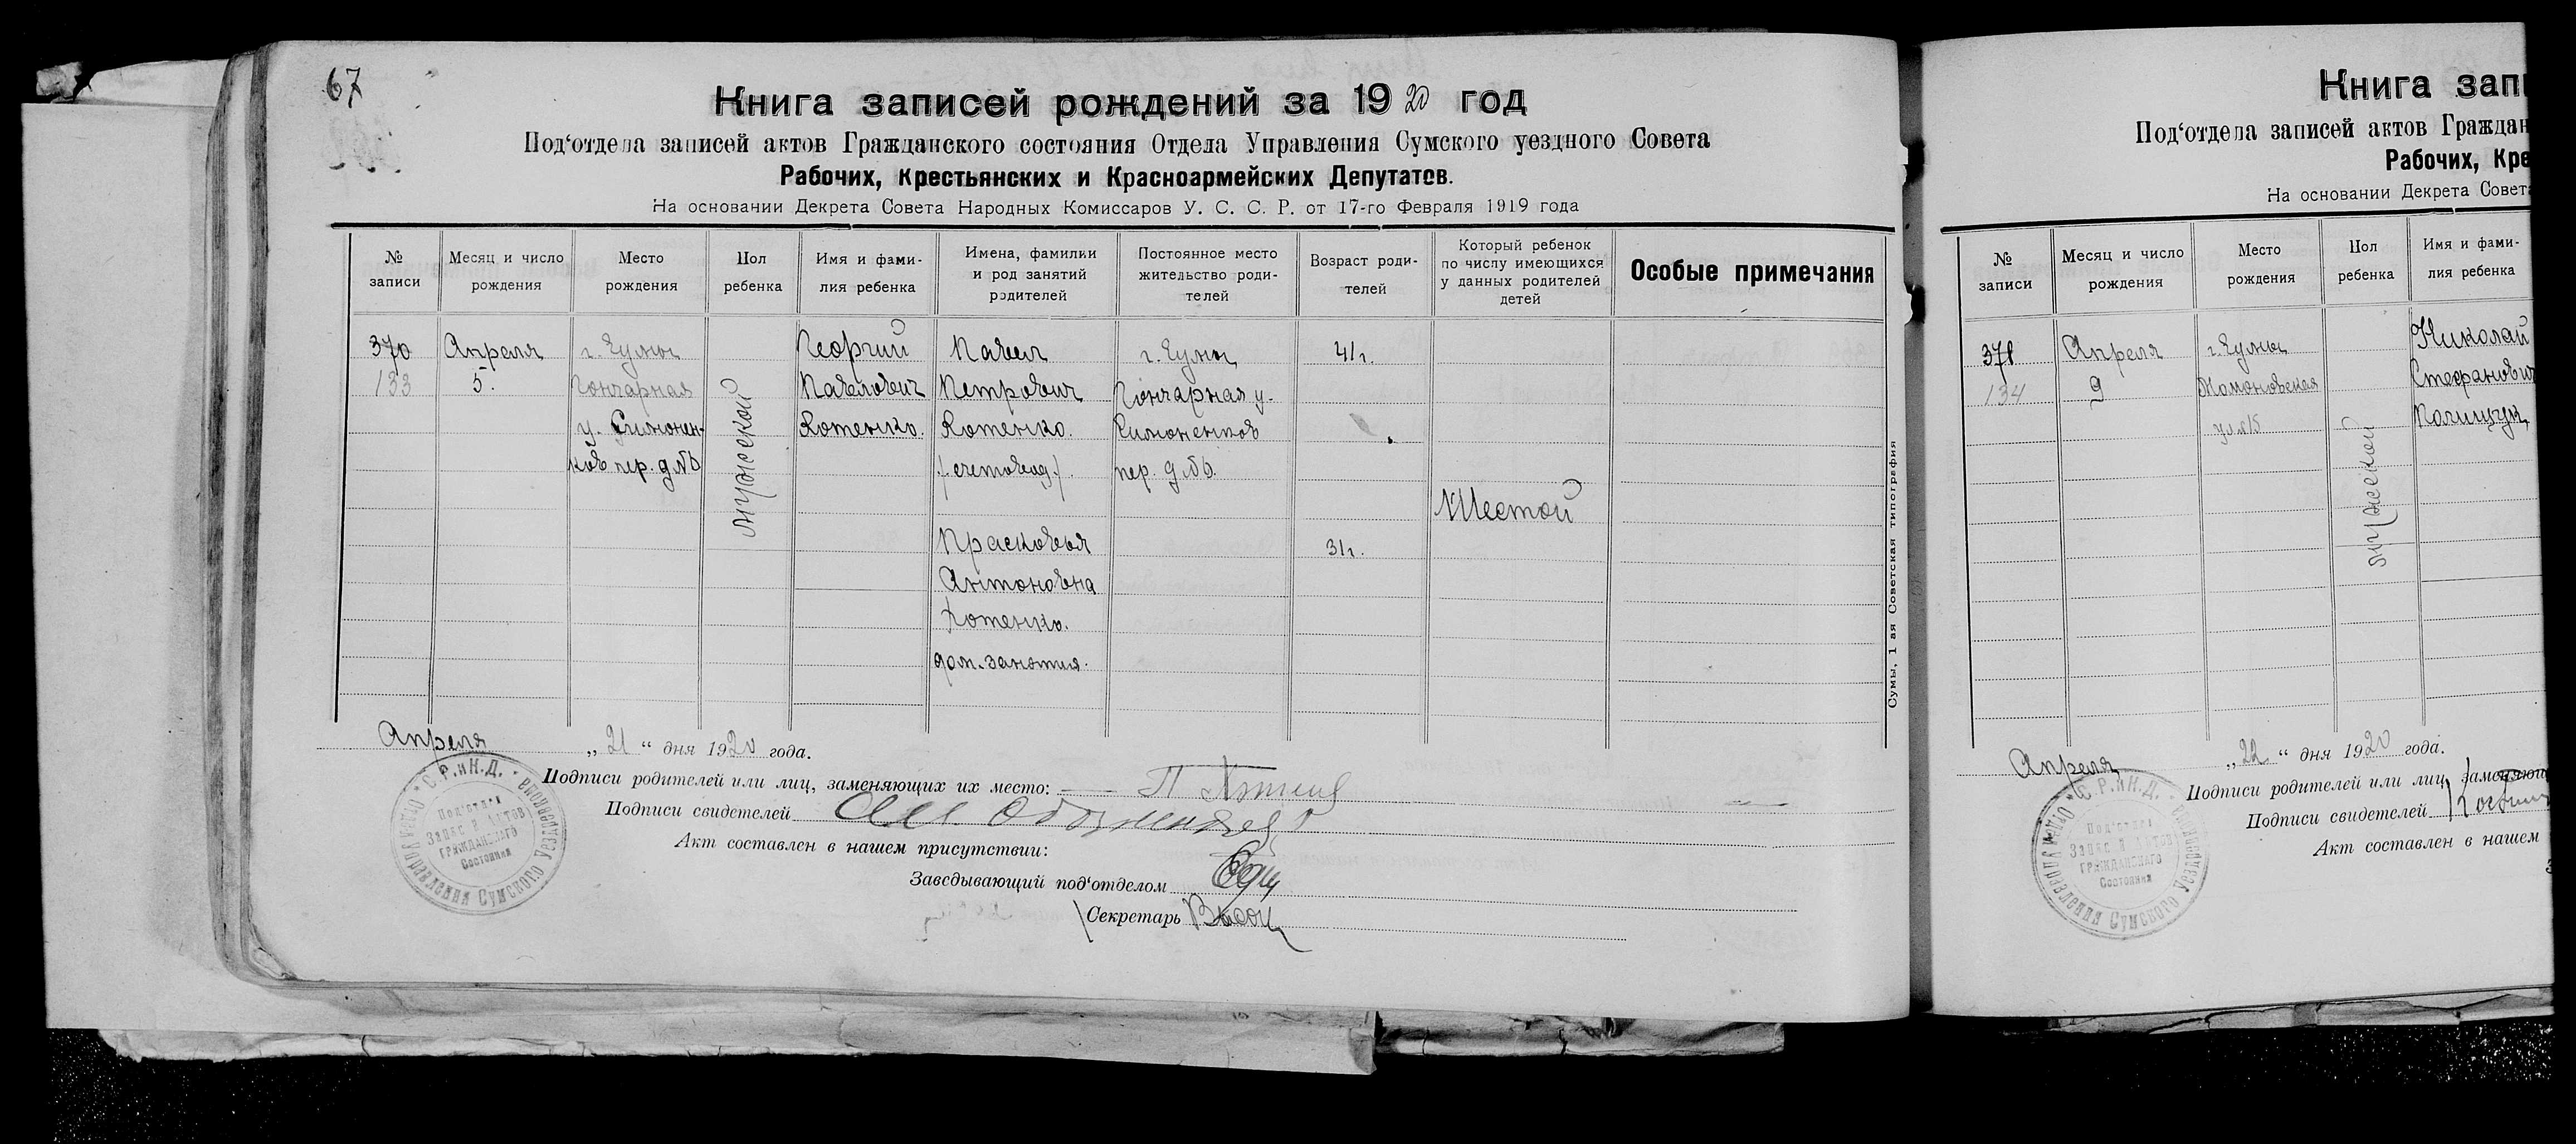 67
Книга записей рождений за 1920 год
Под‘отдела записей актов Гражданского состояния Отдела Управления Сумского уездного Совета
Рабочих, Крестьянских и Красноармейских Депутатов.
На основании Декрета Совета Народных Комиссаров У. С. С. Р. от 17-го Февраля 1919 года
№ записи
Месяц и число рождения
Место рождения
Пол ребенка
Имя и фами-
лия ребенка
Имена, фамилии
и род занятий
родителей
Постоянное место
жительство роди-
телей
Возраст роди-
телей
Который ребенок
по числу имеющихся
у данных родителей
детей
Особые примечания
370
133
Апреля
5.
г. Сумы
Гончарная
у. Симонен-
ков пер. д №6
мужеской
Георгий
Павлович
Котенко.
Павел
Петрович
Котенко.
/счетовод/.
Прасковья
Антоновна
Котенко.
дом. занятия.
г. Сумы
Гончарная у.
Симоненков
пер. д №6.
41 г.
31 г.
Шестой
Сумы, 1 ая Советская типография
Апреля „ 21 “ дня 1920 года.
Подписи родителей или лиц, заменяющих их место:
Подписи свидетелей
Акт составлен в нашем присутствии:
Заведывающий под‘отделом
Секретарь
С.Р.иК.Д.
Отдел Управления Сумского Уезд
Под‘отдел
Запис и Актов
Гражданского
Состояния
Книга запи
Под‘отдела записей актов Граждан
Рабочих, Кре
На основании Декрета Совета
№ записи
Месяц и число рождения
Место рождения
Пол ребенка
Имя и фами-
лия ребенка
371
134
Апреля
9
г. Сумы
ул. №15
мужеской
Николай
Стефанович
Полищук
Апреля „ 22 “ дня 1920 года.
Подписи родителей или лиц, заменяющ
Подписи свидетелей
Акт составлен в нашем
С.Р.иК.Д.
Отдел Управления Сумского Уезд
Под‘отдел
Запис и Актов
Гражданского
Состояния